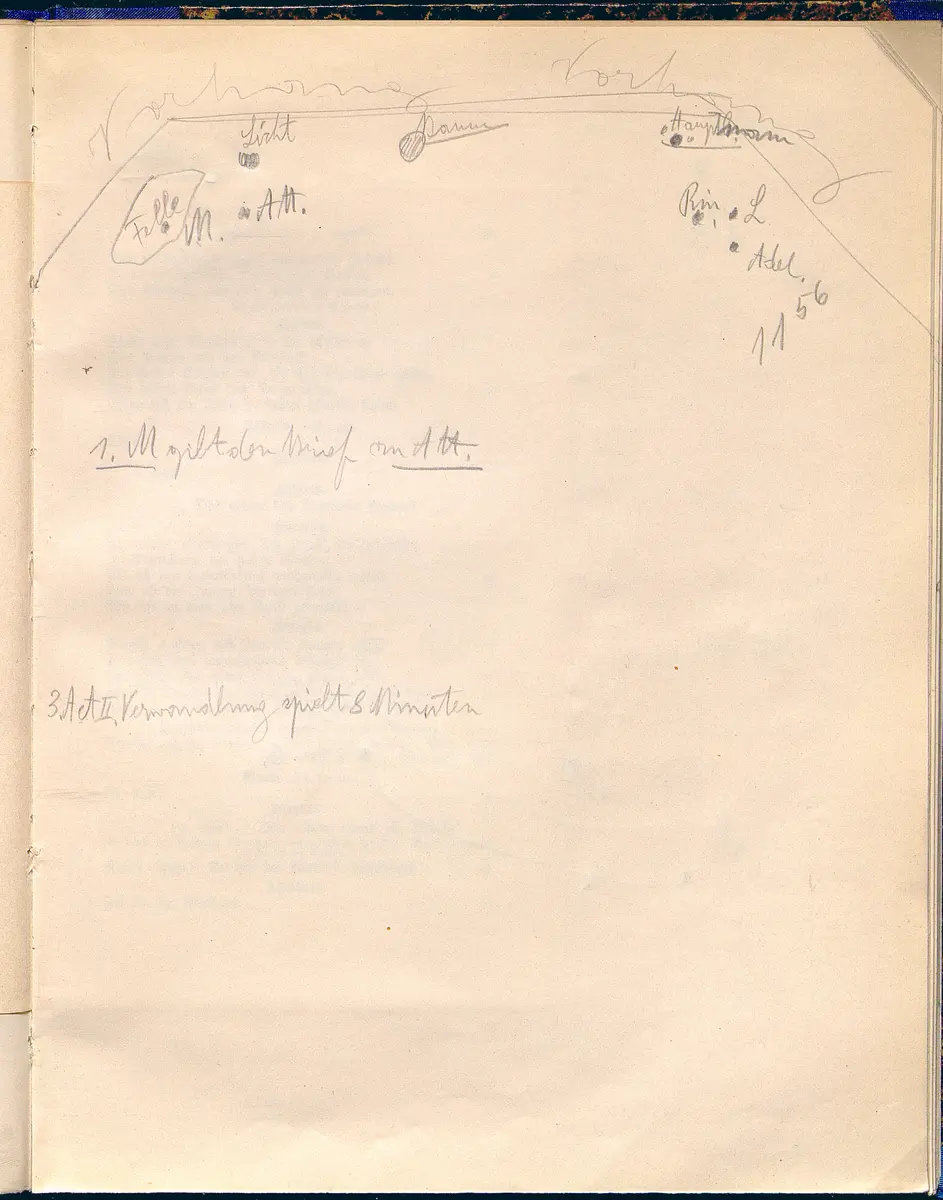 Vorhang Vorhang
Licht
Hauptmann
Felle M. AH.
Rin. L
Adel.
11 56
1. M gibt den Brief an AH.
3. Act II. Verwandlung spielt 8 Minuten